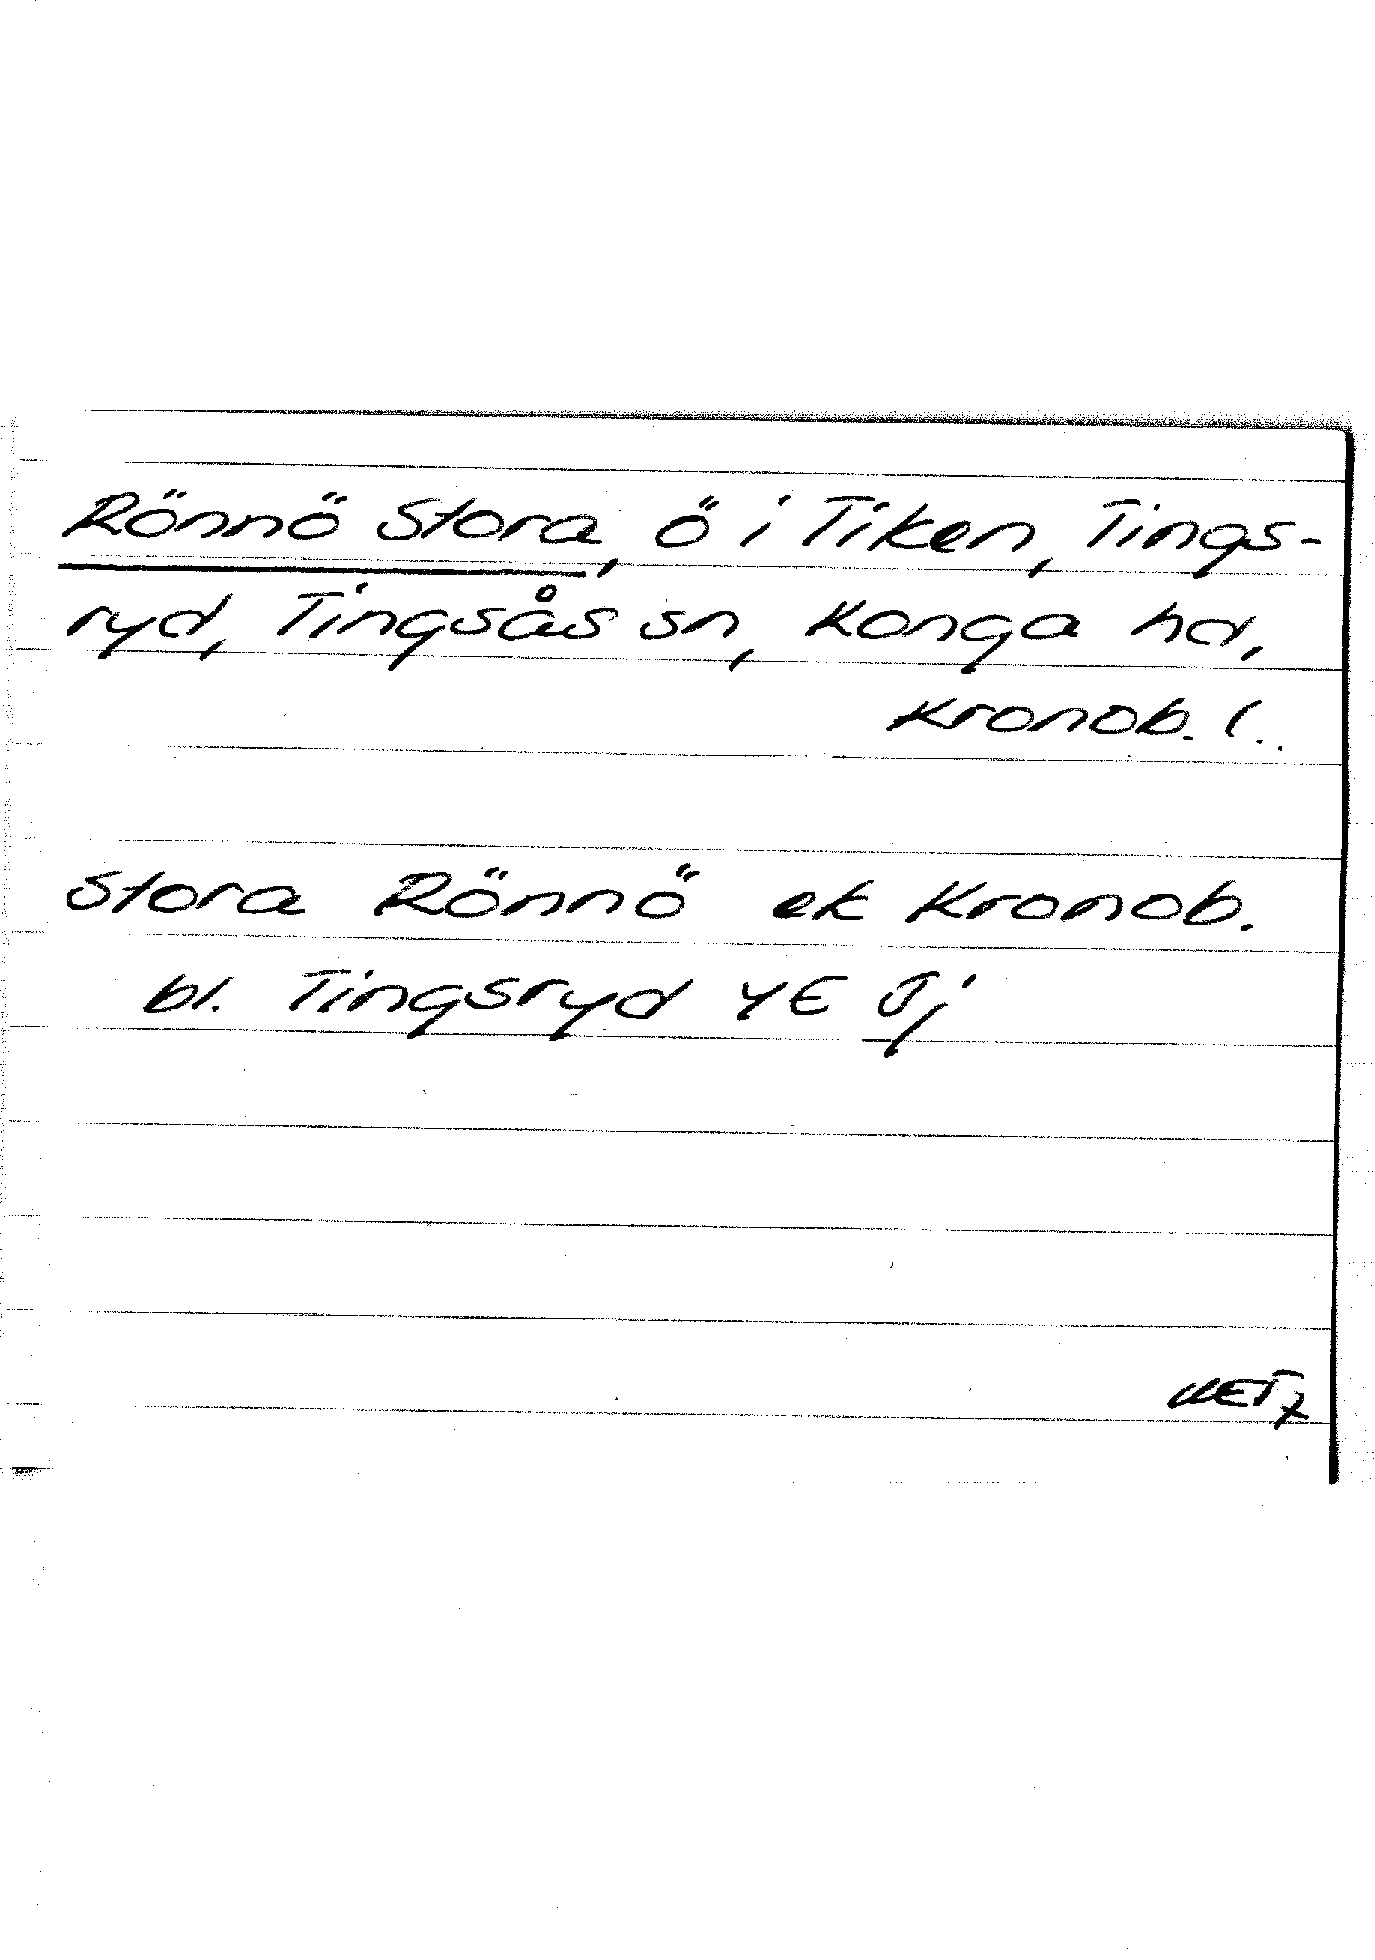 Rönnö Stora, ö i Tiken, Tings-
ryd, Tingsås sn, Konga hd,
Kronob. l.
Stora Rönnö ek Kronob.
bl. Tingsryd 4E